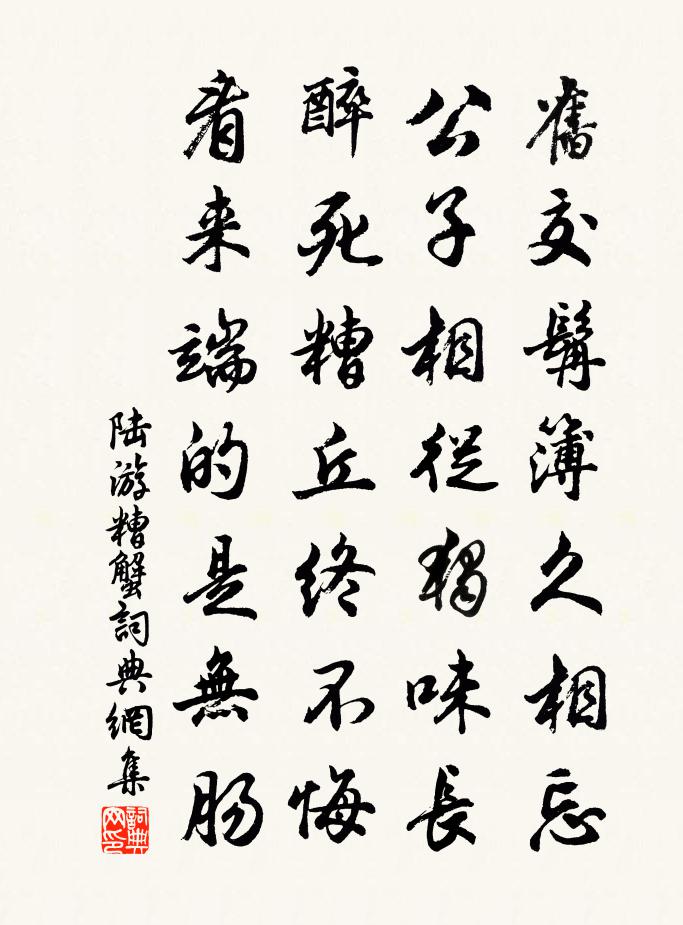 舊交髯簿久相忘
公子相從獨味長
醉死糟丘終不悔
看来端的是無肠
陆游糟蟹詞典網集
詞典网印